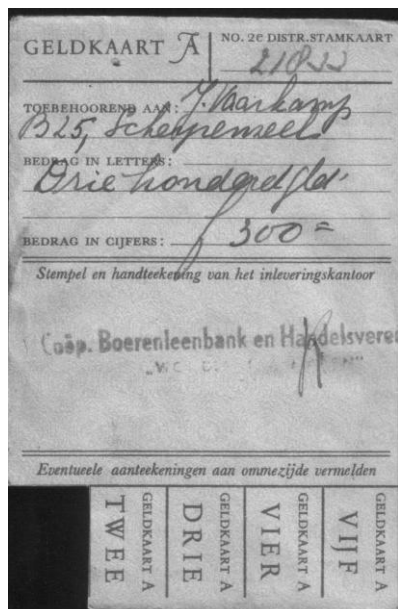 GELDKAART A
NO. 2e DISTR.STAMKAART
TOEBEHOOREND AAN: J. Vaarkamp
B 25, Scherpenzeel
BEDRAG IN LETTERS:
Drie honderd gld.
BEDRAG IN CIJFERS: f 300=
Stempel en handteekening van het inleveringskantoor
Coöp. Boerenleenbank en Handelsveree
Eventueele aanteekeningen aan ommezijde vermelden
GELDKAART A
TWEE
GELDKAART A
DRIE
GELDKAART A
VIER
GELDKAART A
VIJF